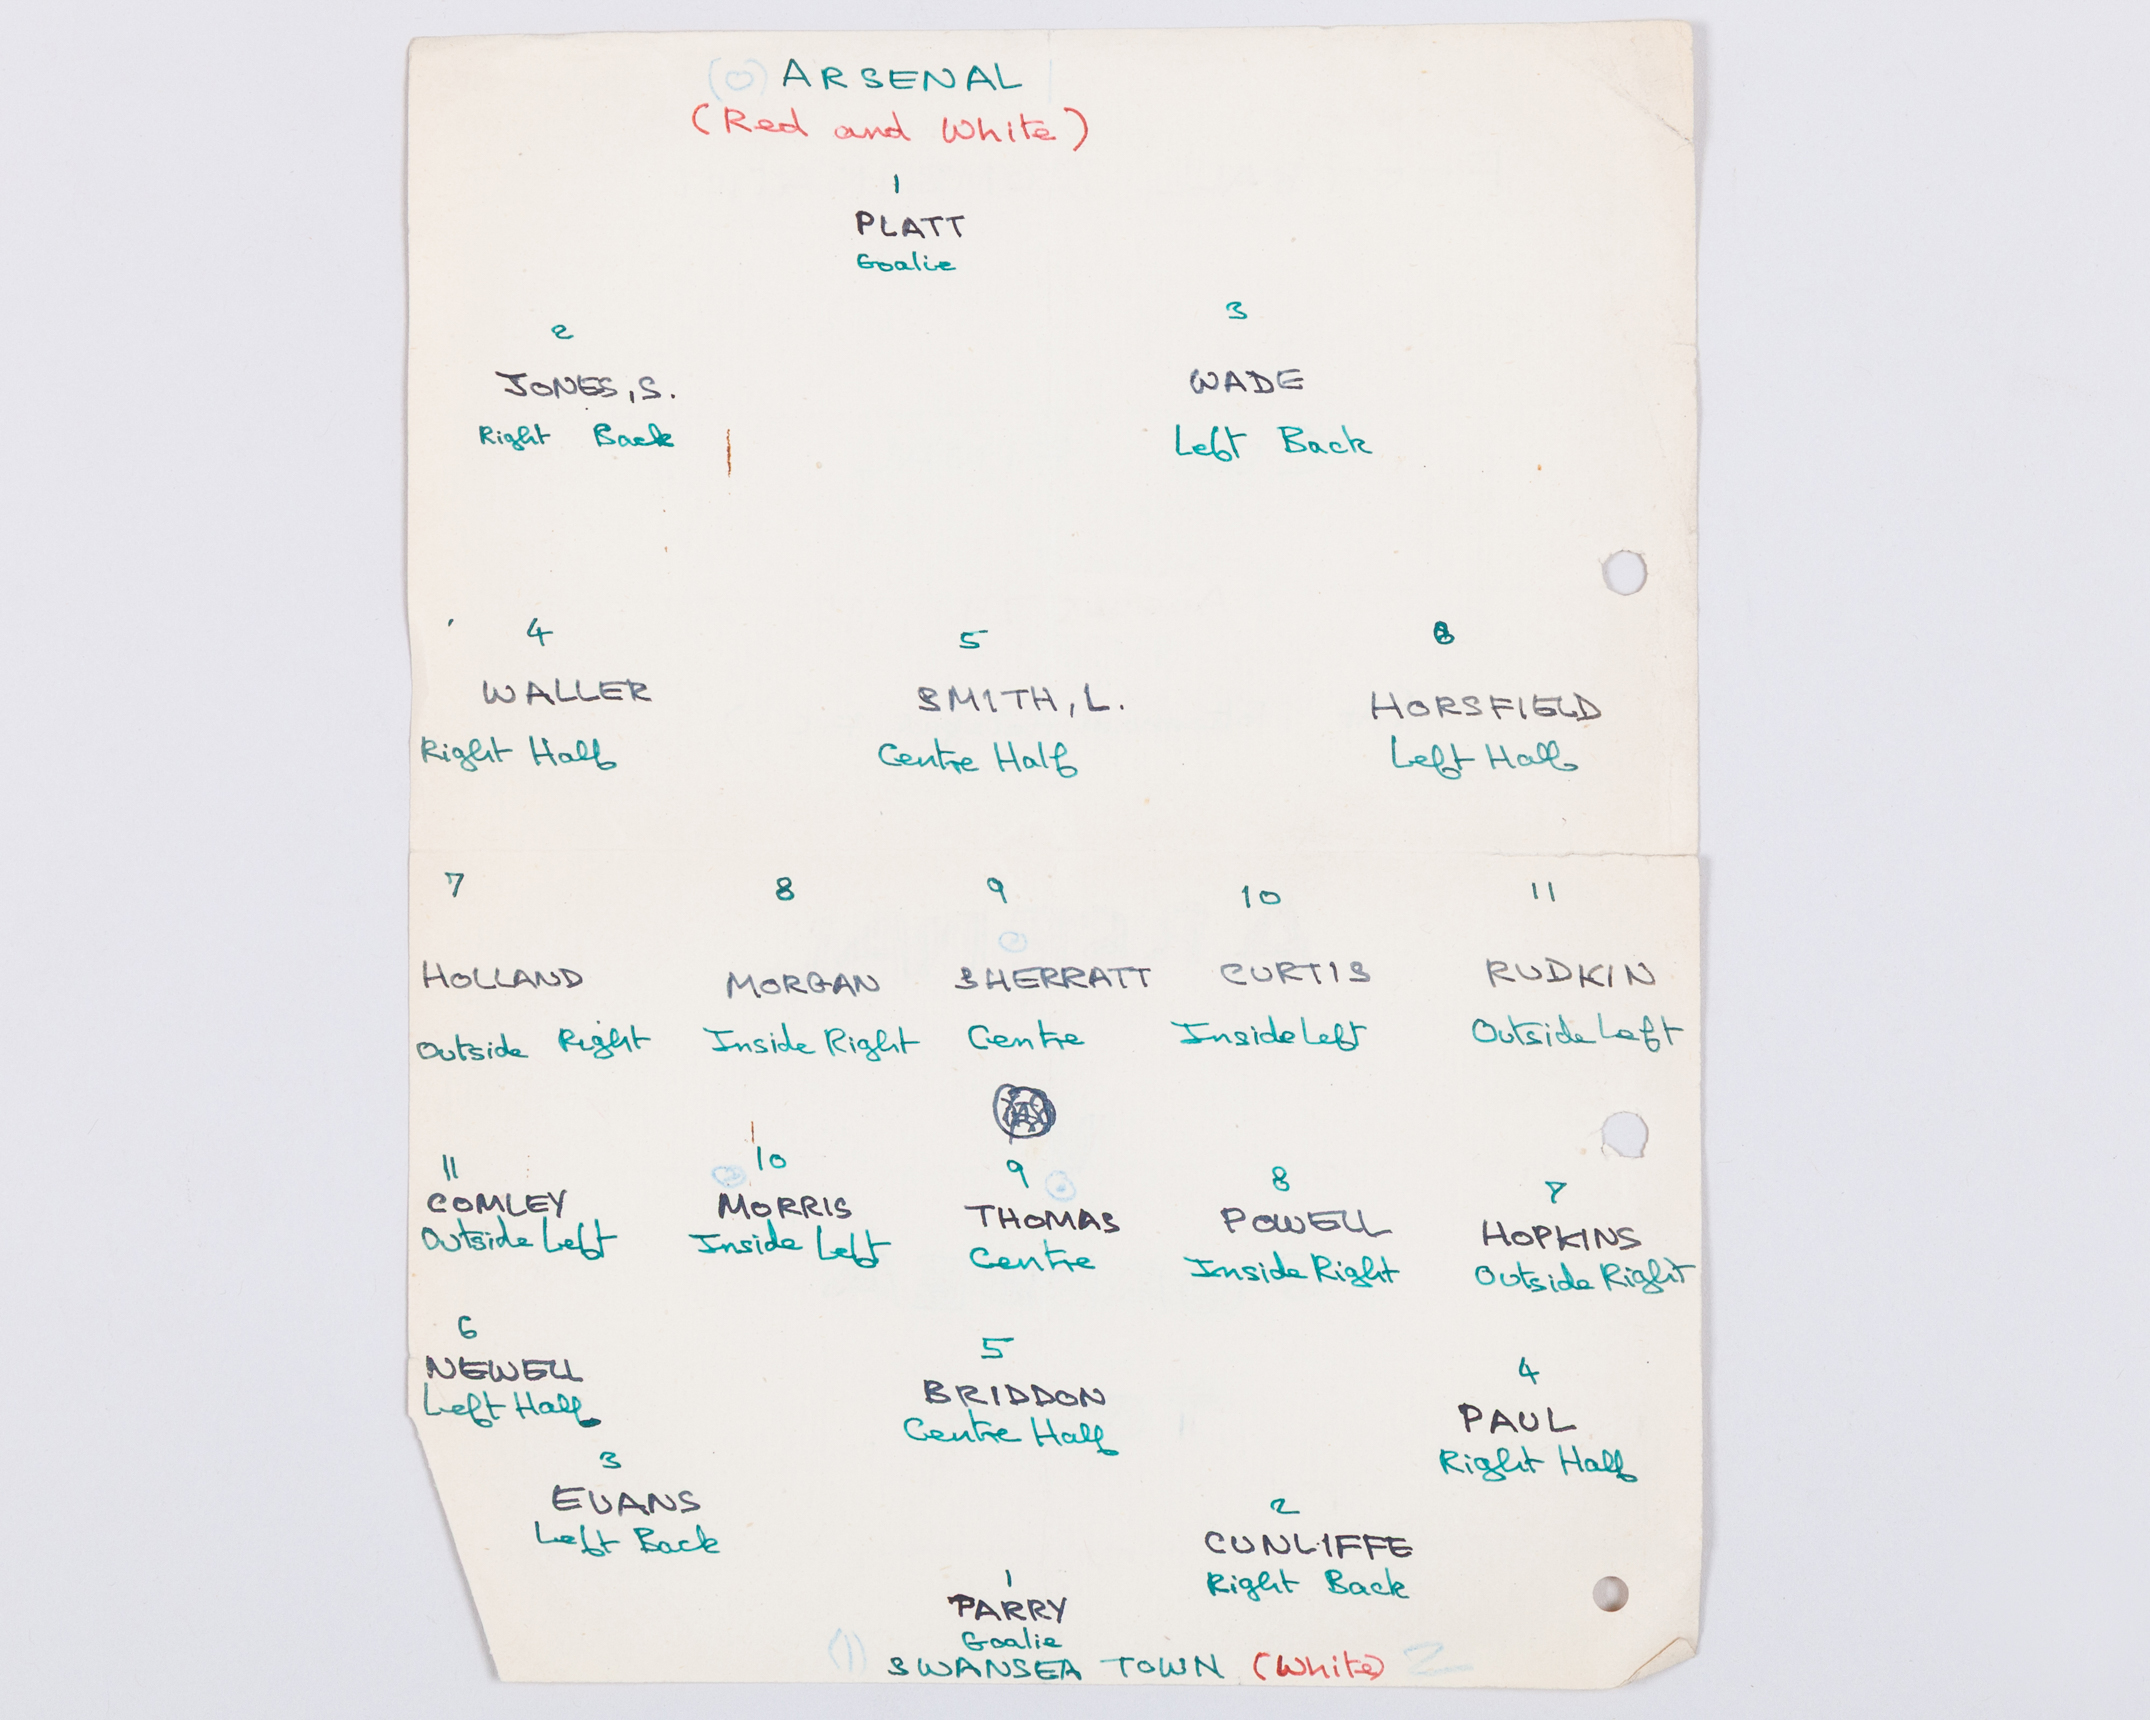 (0) ARSENAL
(Red and White)
1
PLATT
Goalie
2 3
JONES, S. WADE
Right Back Left Back
4 5 6
WALLER SMITH, L. HORSFIELD
Right Half Centre Half Left Half
7 8 9 10 11
HOLLAND MORGAN SHERRATT CURTIS RUDKIN
Outside Right Inside Right Centre Inside Left Outside Left
11 10 9 8 7
COMLEY MORRIS THOMAS POWELL HOPKINS
Outside Left Inside Left Centre Inside Right Outside Right
6 5 4
NEWELL BRIDDON PAUL
Left Half Centre Half Right Half
3 2
EVANS CUNLIFFE
Left Back Right Back
1
PARRY
Goalie
(1) SWANSEA TOWN (White) 2